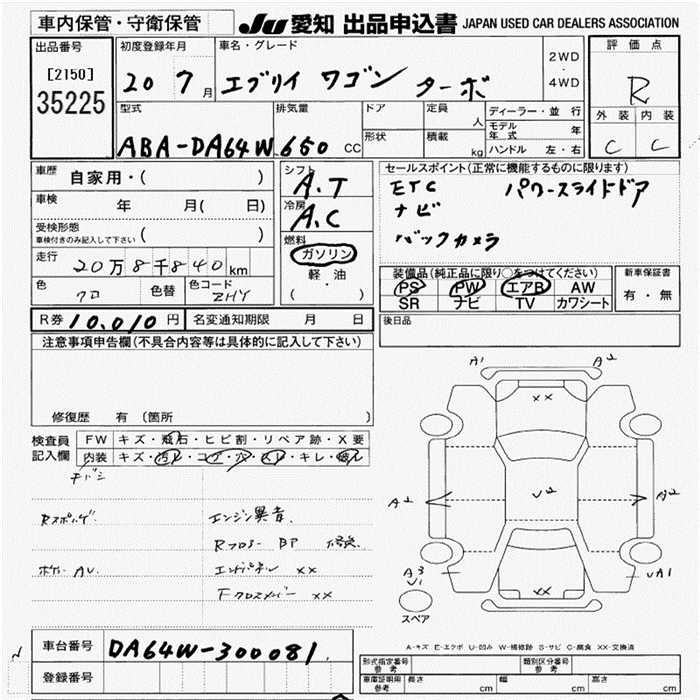 車内保管・守衛保管
JU 愛知 出品申込書 JAPAN USED CAR DEALERS ASSOCIATION
出品番号
[2150]
35225
初度登録年月
20 7月
車名・グレード
エブリイ ワゴン ターボ
2WD
・
4WD
評価点
R
外装 内装
C C
型式
ABA-DA64W
排気量
650 CC
ドア
形状
定員 人
積載 kg
ディーラー・並行
モデル年式 年
ハンドル 左・右
車歴
自家用・( )
車検 年 月( 日)
受検形態
車検付きのみ記入して下さい ( )
走行
20万8千840km
色
クロ
色替
色コード
ZHY
シフト
A.T
冷房
A.C
燃料
ガソリン
軽油
( ・ )
セールスポイント(正常に機能するものに限ります)
ETC パワースライドドア
ナビ
バックカメラ
装備品(純正品に限り○をつけてください)
PS PW エアB AW
SR ナビ TV カワシート
新車保証書
有・無
R券 10,010円
名変通知期限 月 日
後日品
注意事項申告欄(不具合内容等は具体的に記入して下さい)
修復歴 有 (箇所
検査員記入欄
FW キズ・飛石・ヒビ割・リペア跡・X要
内装 キズ・汚レ・コゲ・穴・スレ・キレ・破レ
エンジン異音.
エンドパネル XX
Fクロスメンバー XX
A1 A2
XX
A2 U2 A2
A3
U1
XX
UA1
スペア
A-キズ E-エクボ U-凹み W-補修跡 S-サビ C-腐食 XX-交換済
車台番号
DA64W-300081
登録番号
型式指定番号
参考
類別区分番号
参考
車庫証明用
参考
長さ cm 幅 cm 高さ cm